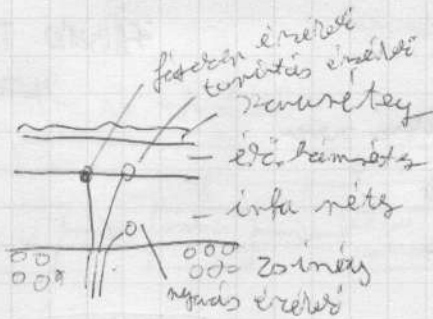 fájdalom érzékelő
tapintás érzékelő
szaruréteg
élő hámréteg
irha réteg
zsírréteg
nyomás érzékelő